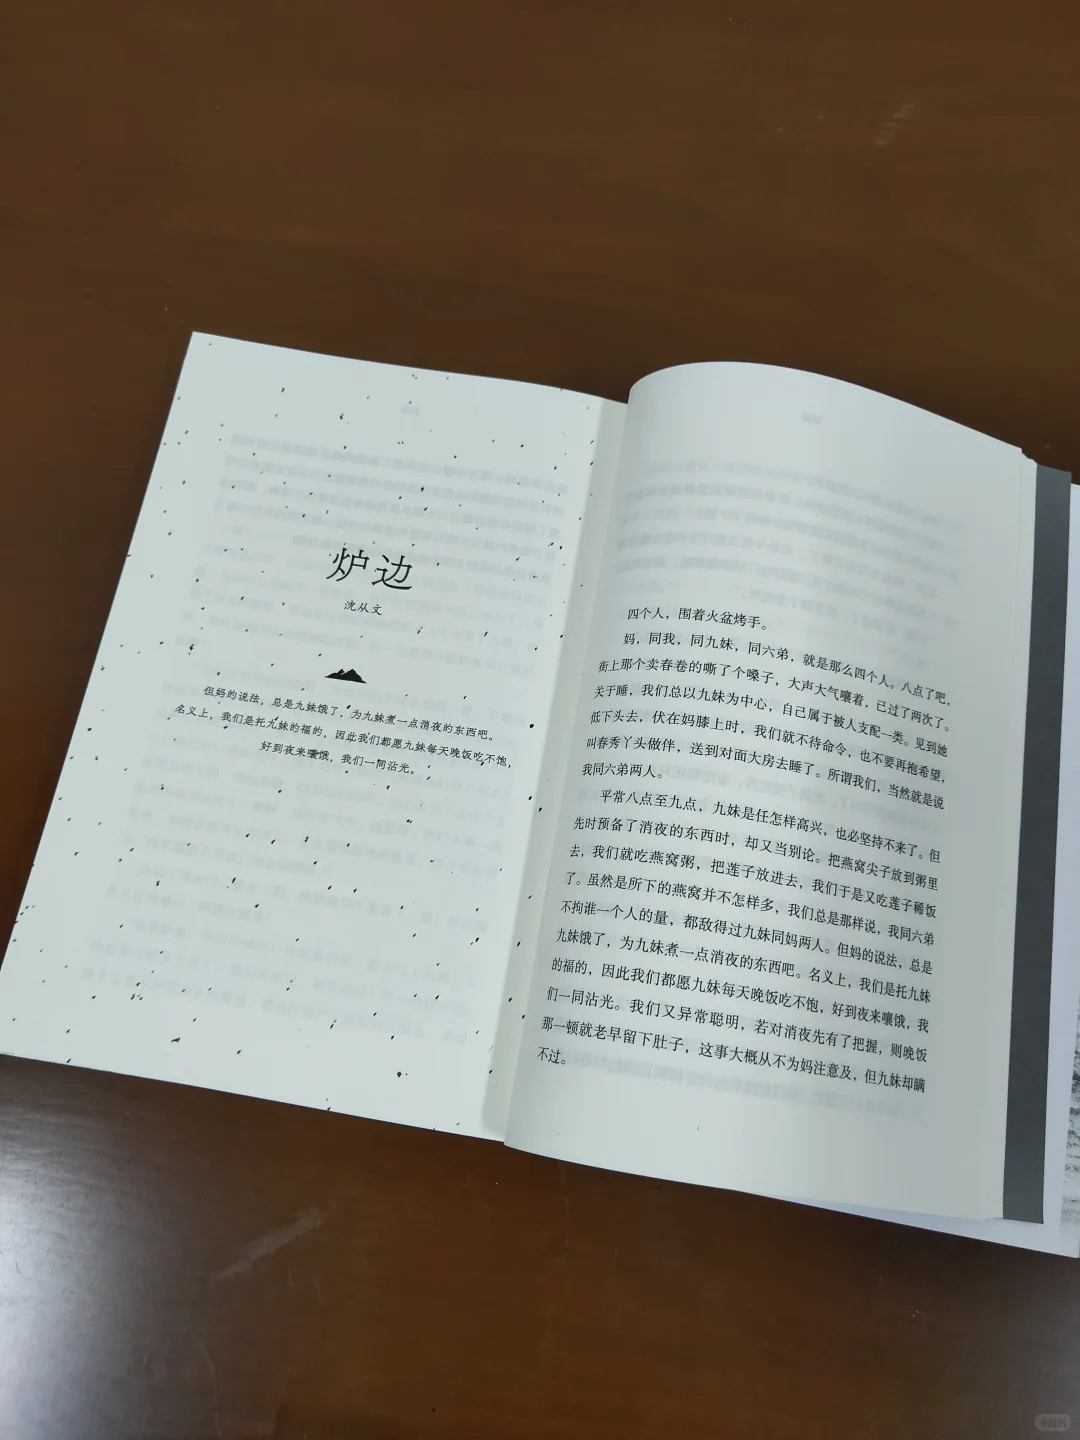 炉边
沈从文
但妈的说法，总是九妹饿了，为九妹煮一点消夜的东西吧。
名义上，我们是托九妹的福的，因此我们都愿九妹每天晚饭吃不饱，
好到夜来嚷饿，我们一同沾光。
四个人，围着火盆烤手。
妈，同我，同九妹，同六弟，就是那么四个人。八点了吧，
街上那个卖春卷的嘶了个嗓子，大声大气嚷着，已过了两次了。
关于睡，我们总以九妹为中心，自己属于被人支配一类。见到她
低下头去，伏在妈膝上时，我们就不待命令，也不要再抱希望，
叫春秀丫头做伴，送到对面大房去睡了。所谓我们，当然就是说
我同六弟两人。
平常八点至九点，九妹是任怎样高兴，也必坚持不来了。但
先时预备了消夜的东西时，却又当别论。把燕窝尖子放到粥里
去，我们就吃燕窝粥，把莲子放进去，我们于是又吃莲子稀饭
了。虽然是所下的燕窝并不怎样多，我们总是那样说，我同六弟
不拘谁一个人的量，都敌得过九妹同妈两人。但妈的说法，总是
九妹饿了，为九妹煮一点消夜的东西吧。名义上，我们是托九妹
的福的，因此我们都愿九妹每天晚饭吃不饱，好到夜来嚷饿，我
们一同沾光。我们又异常聪明，若对消夜先有了把握，则晚饭
那一顿就老早留下肚子，这事大概从不为妈注意及，但九妹却瞒
不过。